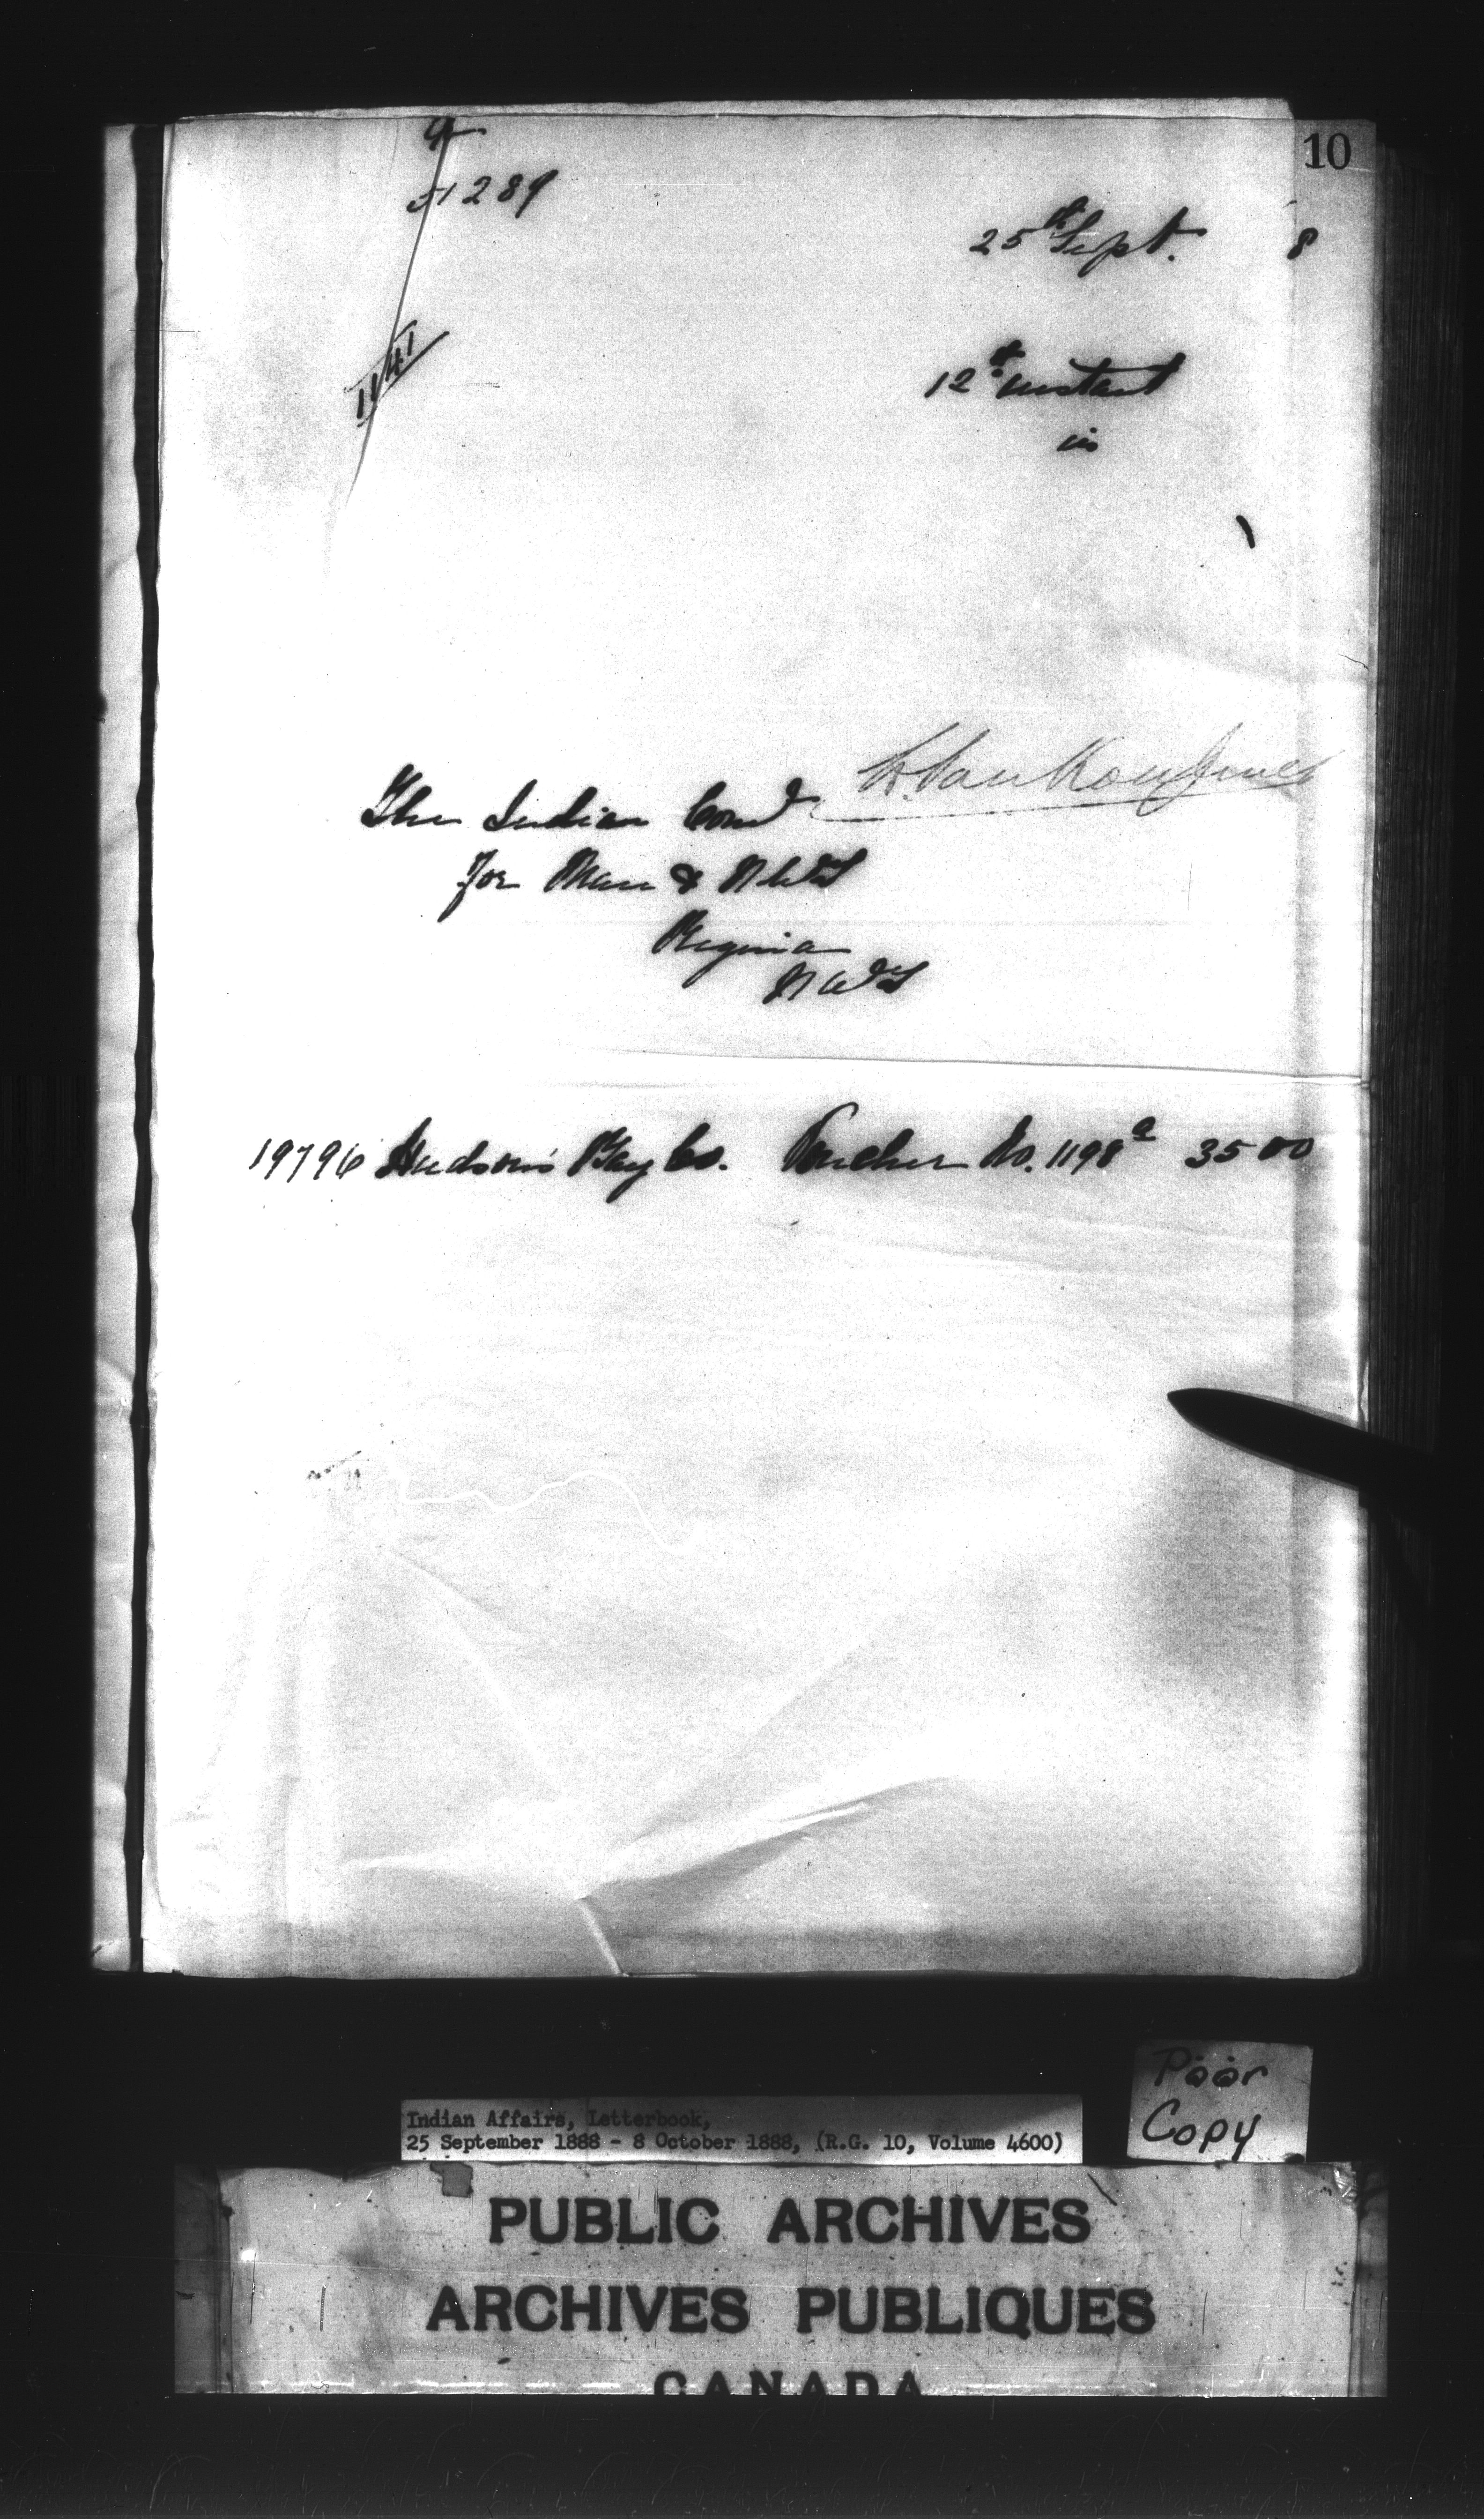 10
51289
25th Sept. 8
1141
12th instant
is
L. VanKoughnet
The Indian Comr
for Man & N.W.T
Regina
N.W.T
19796 Hudson's Bay Co. Voucher No. 1198a 35 00
Poor
Copy
Indian Affairs, Letterbook,
25 September 1888 - 8 October 1888, (R.G. 10, Volume 4600)
PUBLIC ARCHIVES
ARCHIVES PUBLIQUES
CANADA